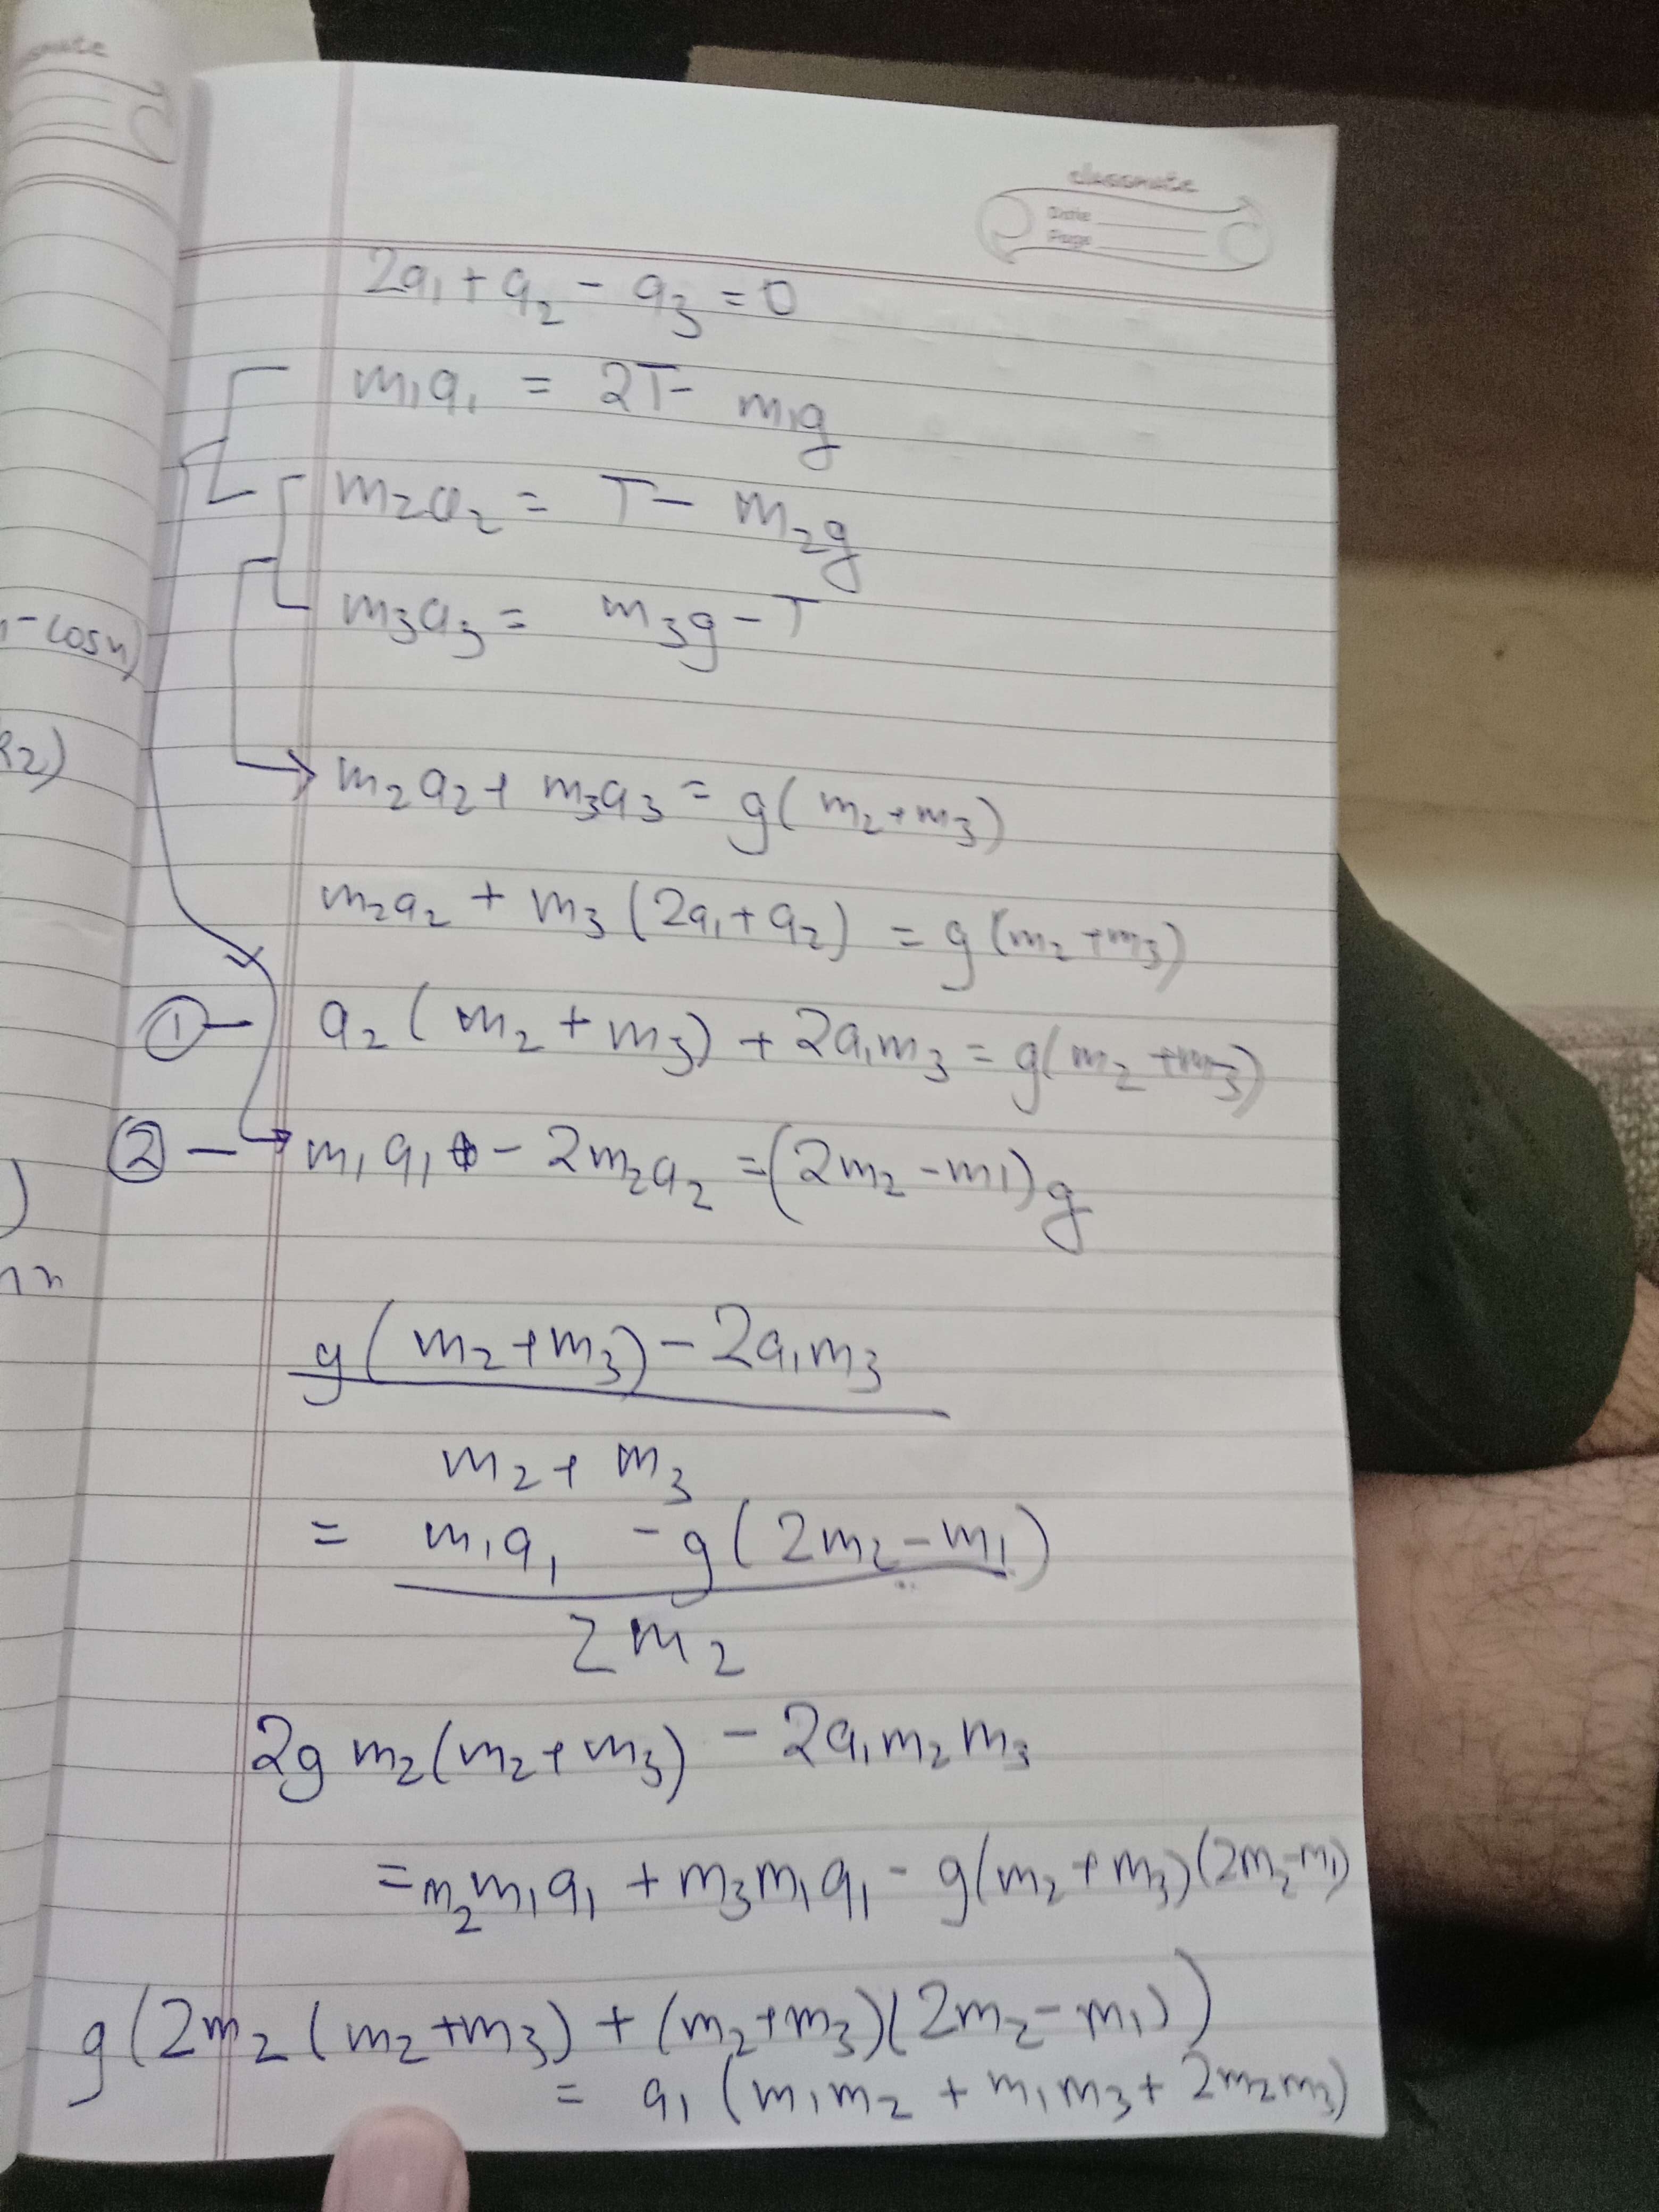 classmate
Date
Page
2a₁ + a₂ - a₃ = 0
m₁a₁ = 2T - m₁g
m₂a₂ = T - m₂g
m₃a₃ = m₃g - T
-cosx)
R2)
m₂a₂ + m₃a₃ = g(m₂+m₃)
m₂a₂ + m₃(2a₁+a₂) = g(m₂+m₃)
① - a₂(m₂+m₃) + 2a₁m₃ = g(m₂+m₃)
② - m₁a₁ - 2m₂a₂ = (2m₂-m1)g
g(m₂+m₃) - 2a₁m₃
m₂+m₃
= m₁a₁ - g(2m₂-m₁)
2m₂
2g m₂(m₂+m₃) - 2a₁m₂m₃
= m₂m₁a₁ + m₃m₁a₁ - g(m₂+m₃)(2m₂-m₁)
g(2m₂(m₂+m₃) + (m₂+m₃)(2m₂-m₁))
= a₁(m₁m₂ + m₁m₃ + 2m₂m₃)